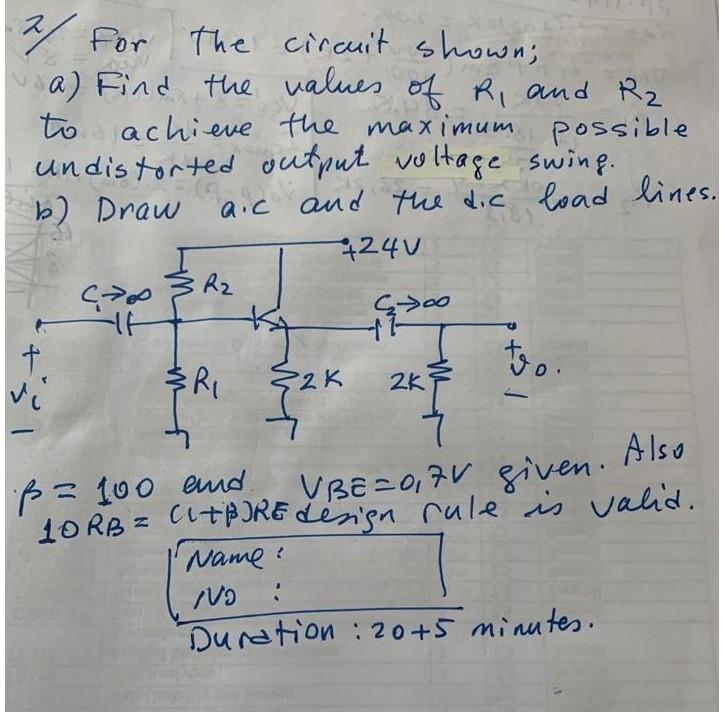 2/ For the circuit shown;
a) Find the values of R1 and R2
to achieve the maximum possible
undistorted output voltage swing.
b) Draw a.c and the d.c load lines.
+24V
C1→∞
R2
C2→∞
+
vi
-
R1
2K
2K
+
vo.
-
β = 100 and VBE=0,7V given. Also
10RB = (1+β)RE design rule is valid.
Name :
No :
Duration : 20+5 minutes.